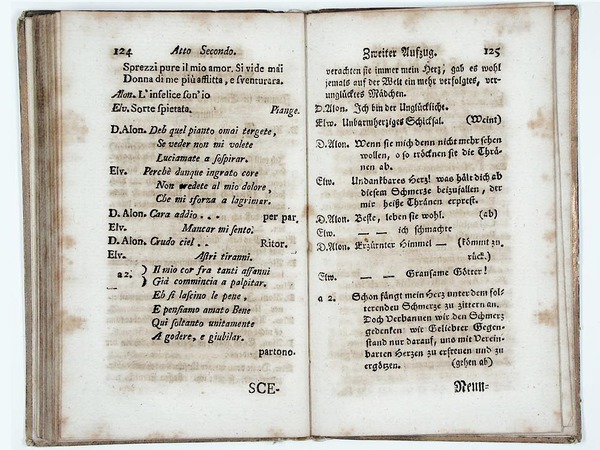 124 Atto Secondo.
Sprezzi pure il mio amor. Si vide mai
Donna di me più afflitta, e sventurara.
Alon. L' infelice son' io
Elv. Sorte spietata. Piange.
D. Alon. Deh quel pianto omai tergete,
Se veder non mi volete
Luciamate a sospirar.
Elv. Perchè dunque ingrato core
Non credete al mio dolore,
Che mi sforza a lagrimar.
D. Alon. Cara addio . . . per par.
Elv. Mancar mi sento.
D. Alon. Crudo ciel . . Ritor.
Elv. Astri tiranni.
a 2. ) Il mio cor fra tanti affanni
) Già commincia a palpitar.
Eh si lascino le pene,
E pensiamo amato Bene
Qui soltanto unitamente
A godere, e giubilar.
partono.
SCE-
Zweiter Aufzug. 125
verachten sie immer mein Herz, gab es wohl
jemals auf der Welt ein mehr verfolgtes, ver-
unglücktes Mädchen.
D. Alon. Ich bin der Unglückliche.
Elw. Unbarmherziges Schicksal. (Weint)
D. Alon. Wenn sie mich denn nicht mehr sehen
wollen, o so tröcknen sie die Thrä-
nen ab.
Elw. Undankbares Herz! was hält dich ab
diesem Schmerze beizufallen, der
mir heiße Thränen erpreßt.
D. Alon. Beste, leben sie wohl. (ab)
Elw. — — ich schmachte
D. Alon. Erzürnter Himmel — (kömmt zu-
rück.)
Elw. — — Grausame Götter!
a 2. Schon fängt mein Herz unter dem fol-
terenden Schmerze zu zittern an.
Doch Verbannen wir den Schmerz
gedenken wir Geliebter Gegen-
stand nur darauf, uns mit Verein-
barten Herzen zu erfreuen und zu
ergötzen. (gehen ab)
Neun-